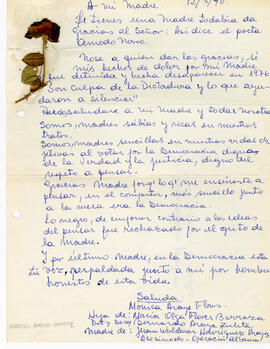 A mi Madre 12/5/90.
"Si tienes una Madre todabia da
gracias al Señor: Asi dice el poeta
Amado Nervo.
Nose a quien dar las gracias, si
mis hechos de dolor por mi Madre
fue detenida y hecha desaparecer en 1976
Son culpa de la Dictadura y lo que ayu
daron a Silenciar"
a mi Madre y todas nosotras
Somos, madres sabias y ricas en nuestros
tratos.
Somos, madres sencillas en nuestras vidas
al votar por la Democracia dignas
de la Verdad y la justicia, digno del
respeto a pensar.
Gracias Madre me enseñaste a
pensar, en el mas sencillo junto
a la mesa era la Democracia.
Lo negro, de contrario a las ideas
del pensar fue rechazado por el grito de
la Madre.
Y por último Madre, en la Democracia esta
tu voz, respaldada junto a mi por hombres
honestos de esta vida.
Saluda
Monica Araya Flores
Hija de: Maria Olga Flores Barraza
Det y Desp Bernardo Araya Zuleta
Madre de: Juan Waldemar Henriquez Araya
Asesinado - Operación Albania